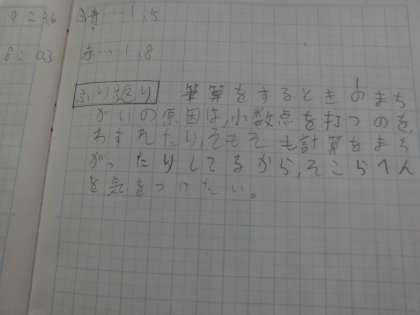 青…1.5
赤…1.8
ふり返り 筆算をするときのまち
がいの原因は,小数点を打つのを
わすれたり,そもそも計算をまち
がったりしてるから,そこらへん
を気をつけたい。